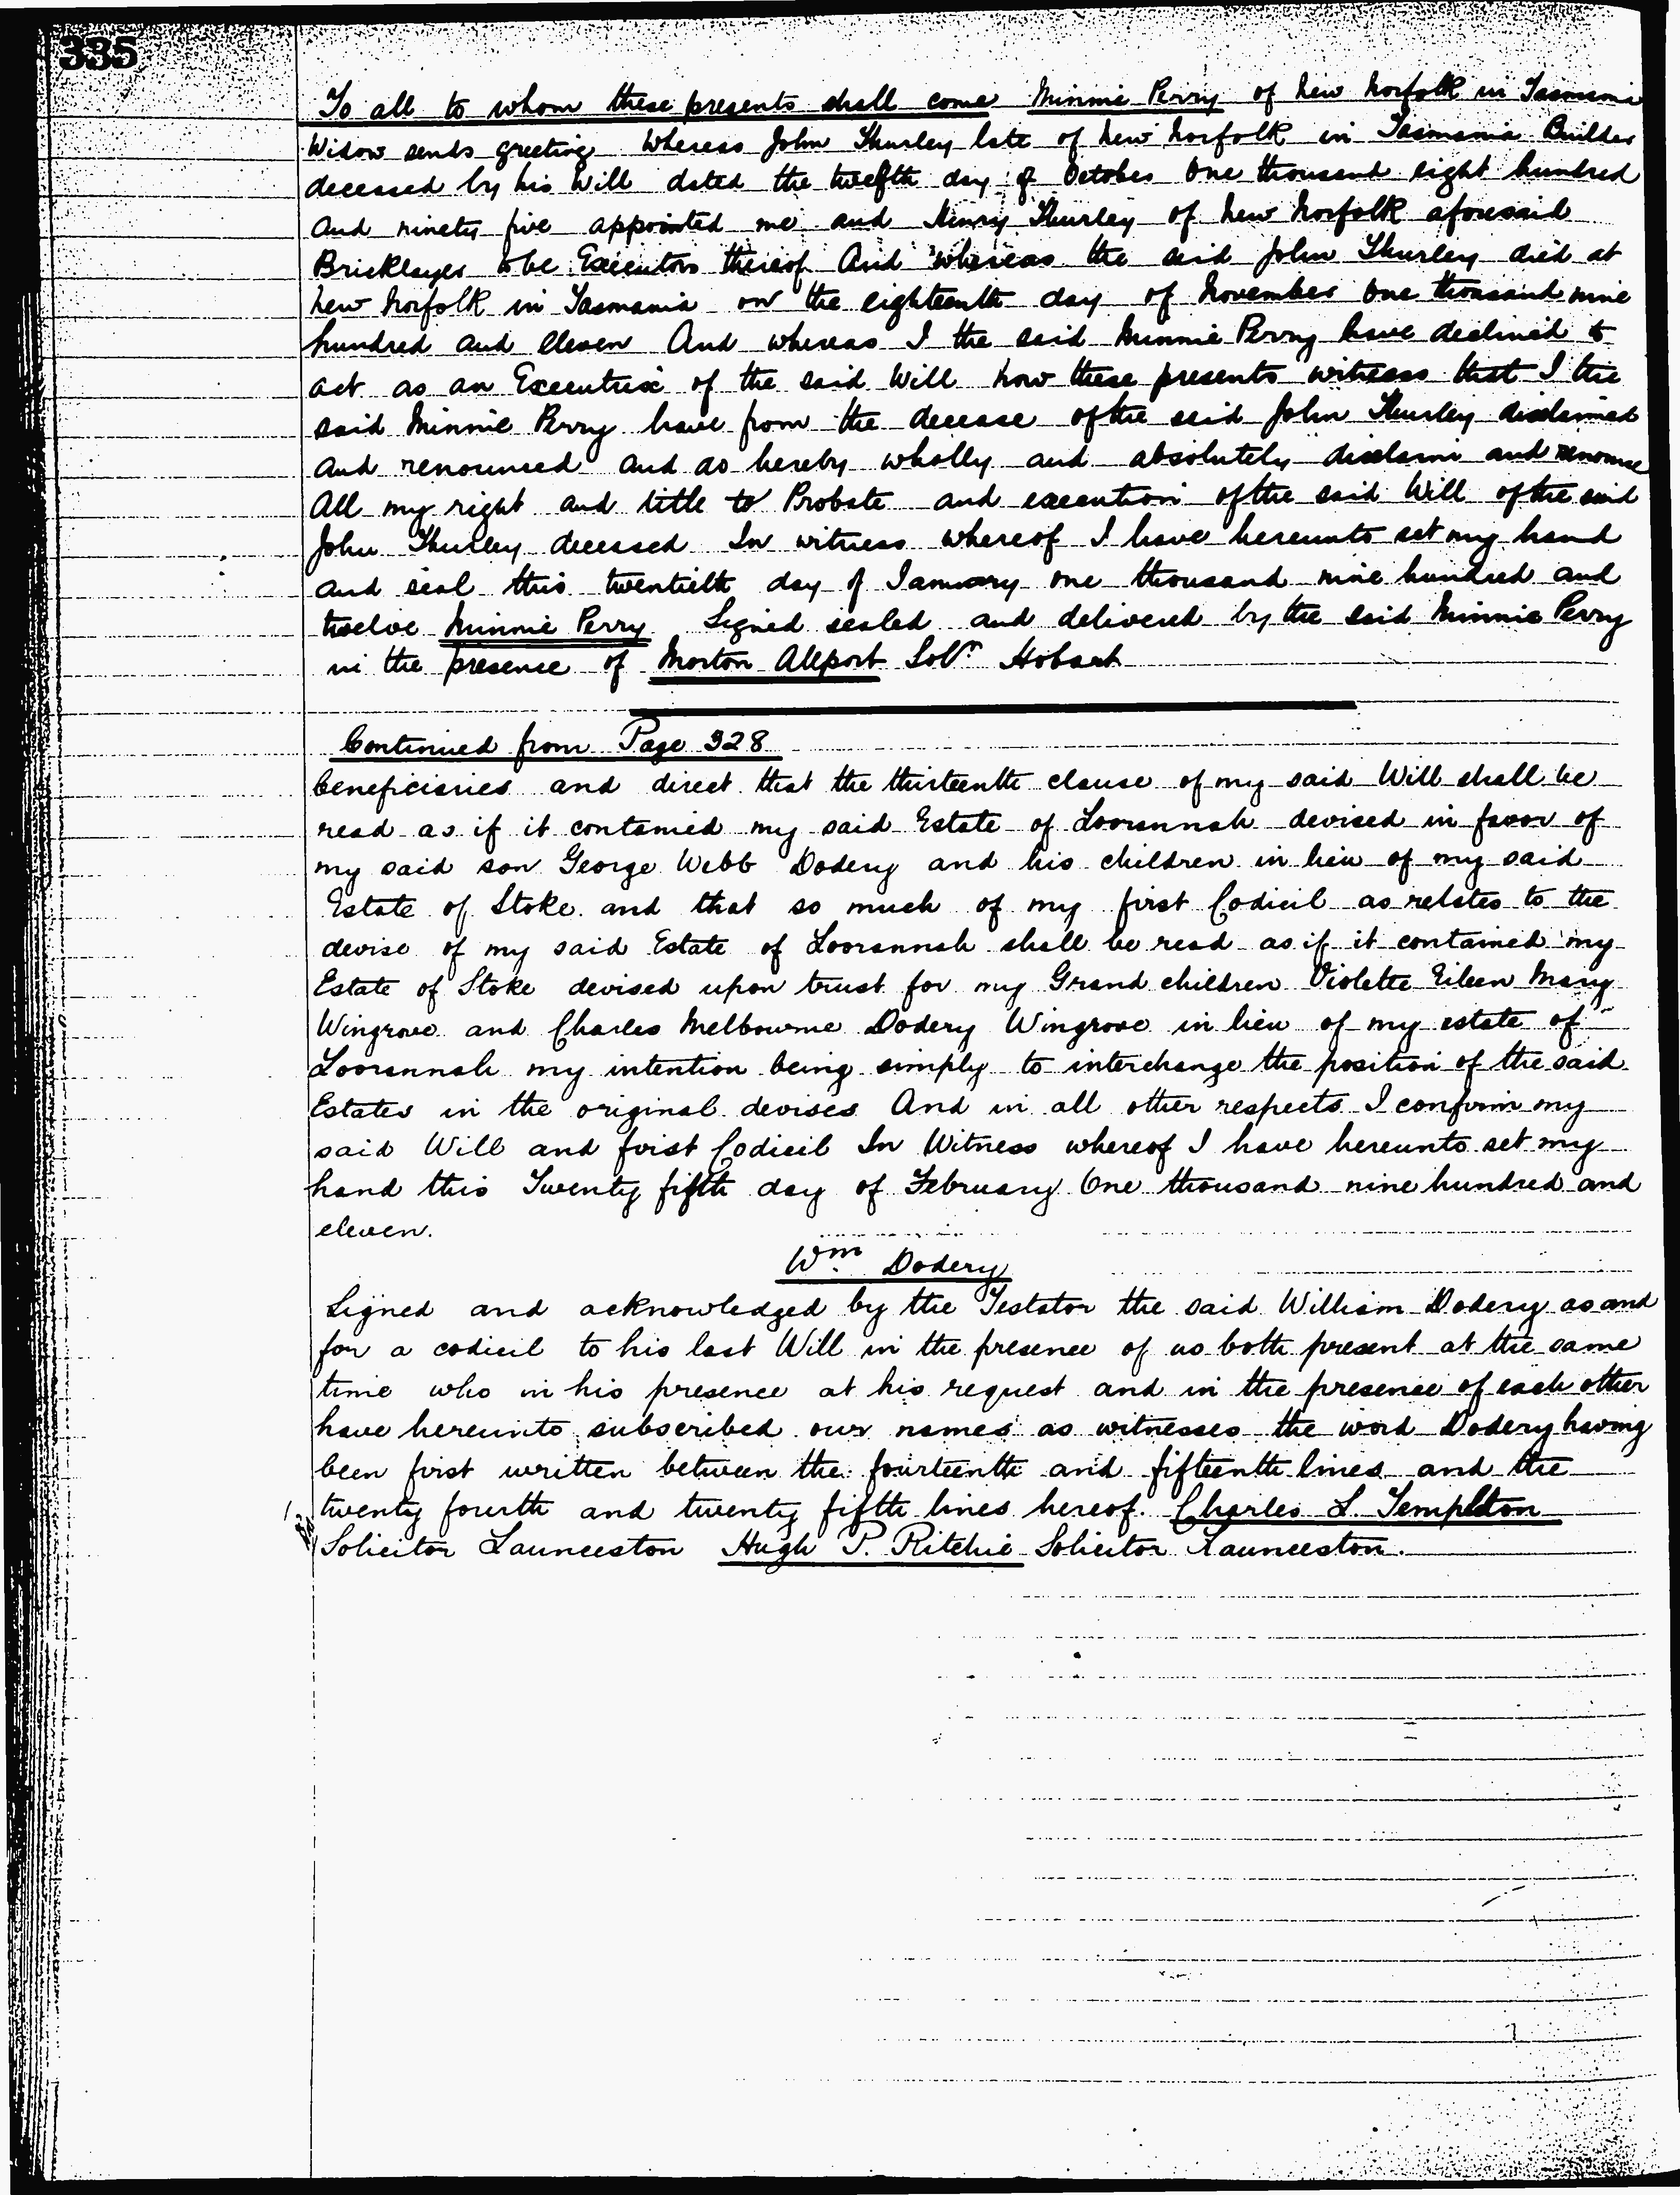 335
To all to whom these presents shall come Minnie Perry of New Norfolk in Tasmania
Widow sends greeting Whereas John Thurley late of New Norfolk in Tasmania Builder
deceased by his Will dated the twelfth day of October One thousand eight hundred
and ninety five appointed me and Henry Thurley of New Norfolk aforesaid
Bricklayer to be Executors thereof And whereas the said John Thurley died at
New Norfolk in Tasmania on the eighteenth day of November One thousand nine
hundred and eleven And whereas I the said Minnie Perry have declined to
act as an Executrix of the said Will Now these presents witness that I the
said Minnie Perry have from the decease of the said John Thurley disclaimed
and renounced and do hereby wholly and absolutely disclaim and renounce
All my right and title to Probate and execution of the said Will of the said
John Thurley deceased In witness whereof I have hereunto set my hand
and seal this twentieth day of January one thousand nine hundred and
twelve Minnie Perry Signed sealed and delivered by the said Minnie Perry
in the presence of Morton Allport Solr Hobart
Continued from Page 328
beneficiaries and direct that the thirteenth clause of my said Will shall be
read as if it contained my said Estate of Loorannah devised in favor of
my said son George Webb Dodery and his children in lieu of my said
Estate of Stoke and that so much of my first Codicil as relates to the
devise of my said Estate of Loorannah shall be read as if it contained my
Estate of Stoke devised upon trust for my Grand children Violette Eileen Mary
Wingrove and Charles Melbourne Dodery Wingrove in lieu of my estate of
Loorannah my intention being simply to interchange the position of the said
Estates in the original devises And in all other respects I confirm my
said Will and first Codicil In Witness whereof I have hereunto set my
hand this Twenty fifth day of February One thousand nine hundred and
eleven.
Wm Dodery
Signed and acknowledged by the Testator the said William Dodery as and
for a codicil to his last Will in the presence of us both present at the same
time who in his presence at his request and in the presence of each other
have hereunto subscribed our names as witnesses the word Dodery having
been first written between the fourteenth and fifteenth lines and the
twenty fourth and twenty fifth lines hereof. Charles L. Templeton
Solicitor Launceston Hugh P. Ritchie Solicitor Launceston.